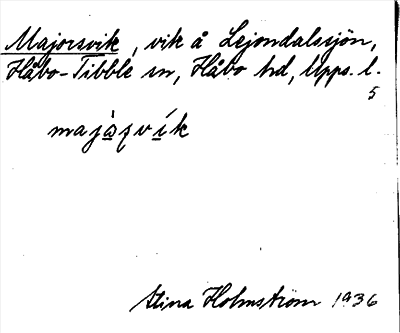 Majorsvik, vik å Lejondalssjön,
Håbo-Tibble sn, Håbo hd, Upps. l.
5
majàʂvík
Stina Holmström 1936